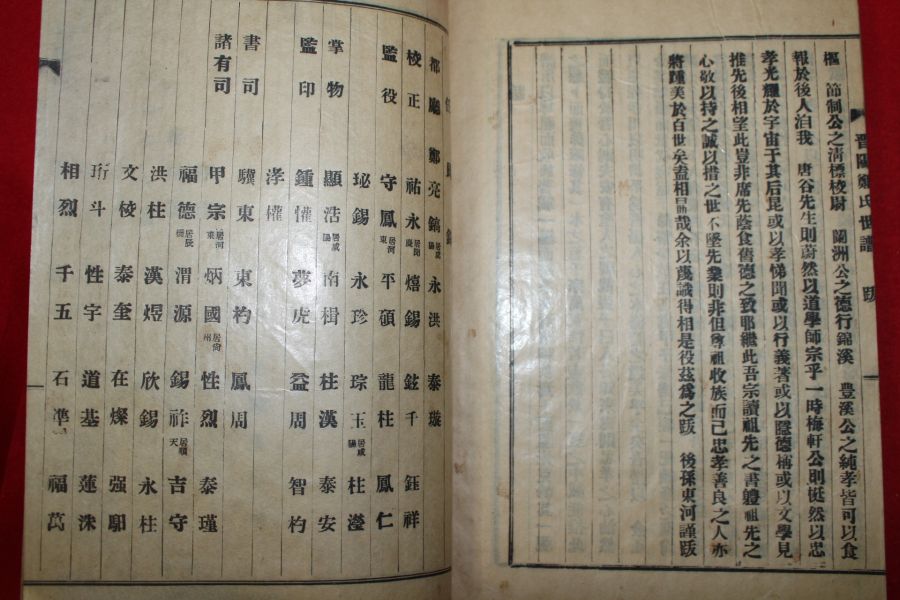 晋陽鄭氏世譜 跋
樞 節制公之淸標校尉 蘭洲公之德行錦溪 豊溪公之純孝皆可以食
報於後人洎我 唐谷先生則蔚然以道學師宗乎一時梅軒公則挺然以忠
孝光耀於宇宙于其后昆或以孝悌聞或以行義著或以隱德稱或以文學見
推先後相望此豈非席先蔭食舊德之致耶繼此吾宗讀祖先之書體祖先之
心敬以持之誠以措之世不墜先業則非但尊祖收族而已忠孝善良之人亦
將踵美於百世矣盍相勗哉余以蔑識得相是役玆爲之跋 後孫東河謹跋
都廳 鄭亮鎬 居咸陽 永洪 泰璇
校正 祐永 居聞慶 熺錫 鉉千 鈺祥
監役 守鳳 居河東 平碩 龍柱 鳳仁
珌錫 永珍 琮玉 居咸陽 柱瀅
掌物 顯浩 居咸陽 南楫 柱漢 泰安
監印 鍾懽 夢虎 益周 智杓
孝權
書司 驥東 東杓 鳳周
諸有司 甲宗 居河東 炳國 居尙州 性烈 泰瑾
福德 居辰橋 渭源 錫祚 居順天 吉守
洪柱 漢煜 欣錫 永柱
文校 泰奎 在燦 强鄢
珩斗 性宇 道基 蓮洙
相烈 千五 石準 福萬